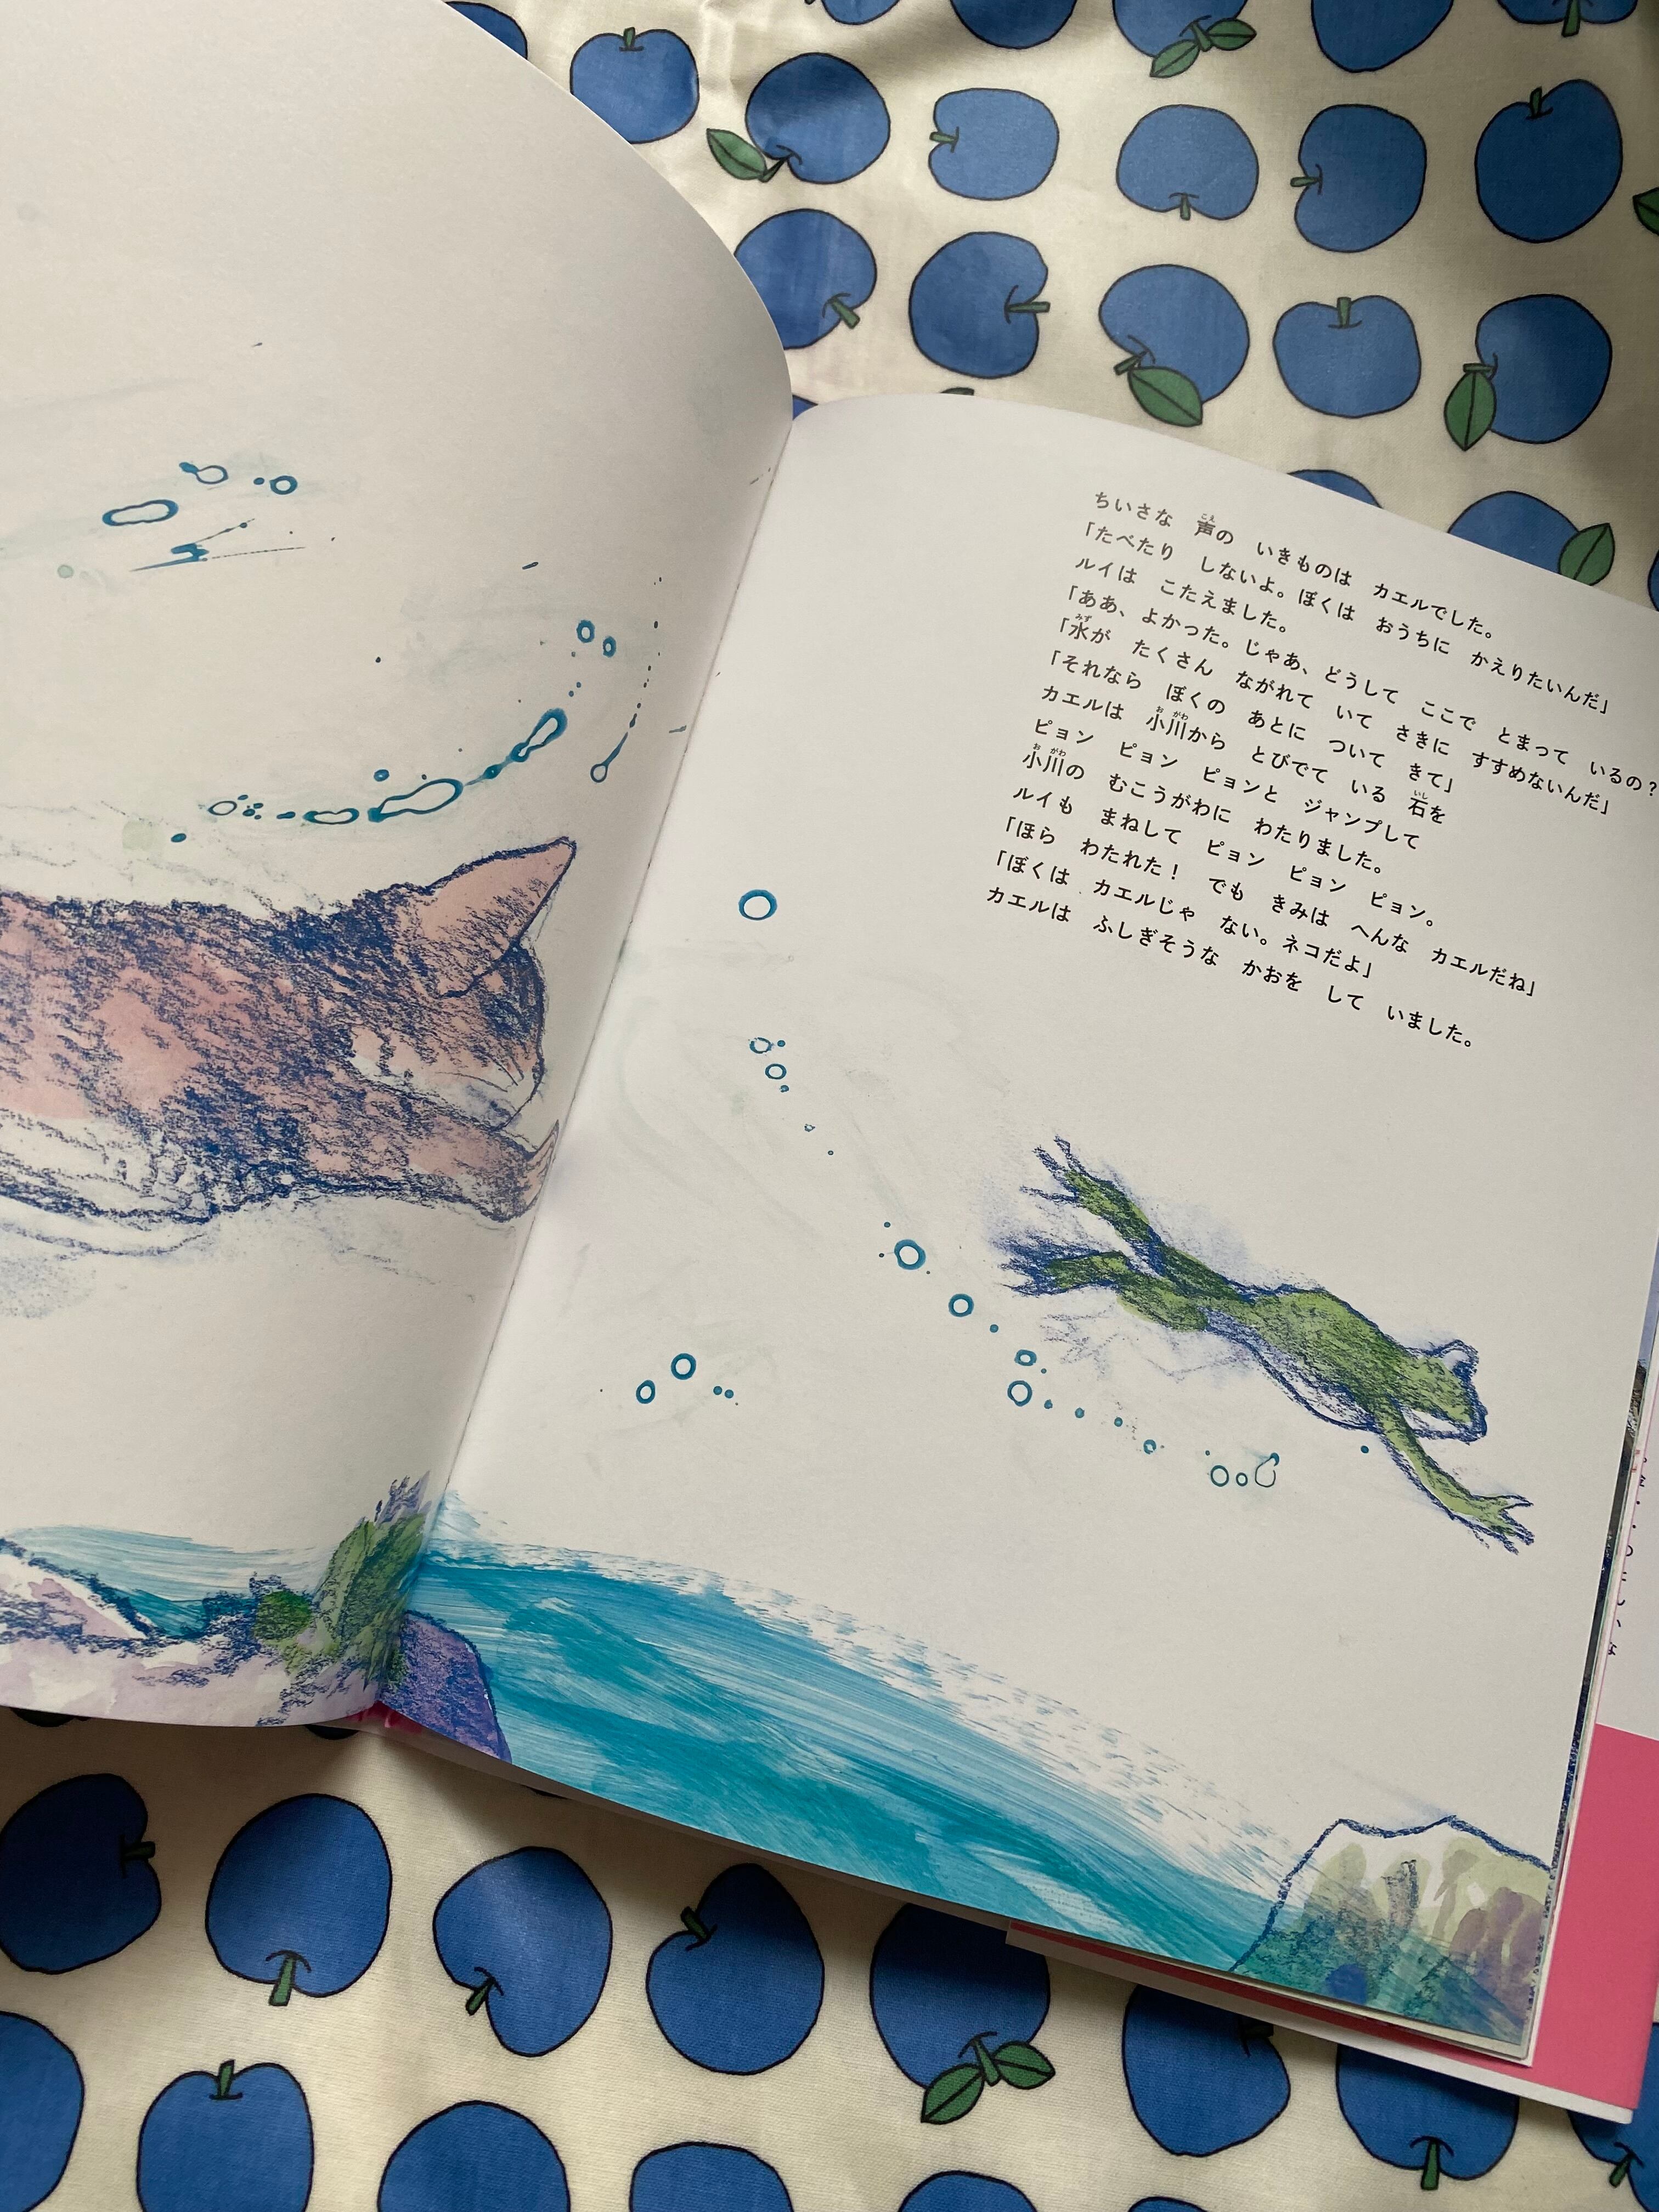 ちいさな　声の　いきものは　カエルでした。
「たべたり　しないよ。ぼくは　おうちに　かえりたいんだ」
ルイは　こたえました。
「ああ、よかった。じゃあ、どうして　ここで　とまって　いるの？
「水が　たくさん　ながれて　いて　さきに　すすめないんだ」
「それなら　ぼくの　あとに　ついて　きて」
カエルは　小川から　とびでて　いる　石を
ピョン　ピョン　ピョンと　ジャンプして
小川の　むこうがわに　わたりました。
ルイも　まねして　ピョン　ピョン　ピョン。
「ほら　わたれた！　でも　きみは　へんな　カエルだね」
「ぼくは　カエルじゃ　ない。ネコだよ」
カエルは　ふしぎそうな　かおを　して　いました。